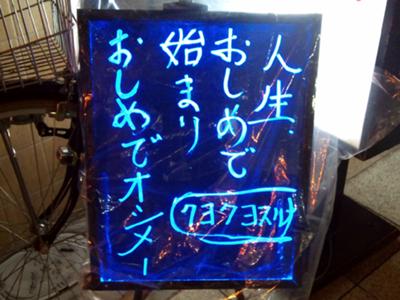 人生、
おしめで
始まり
おしめでオシメー
クヨクヨスルナ